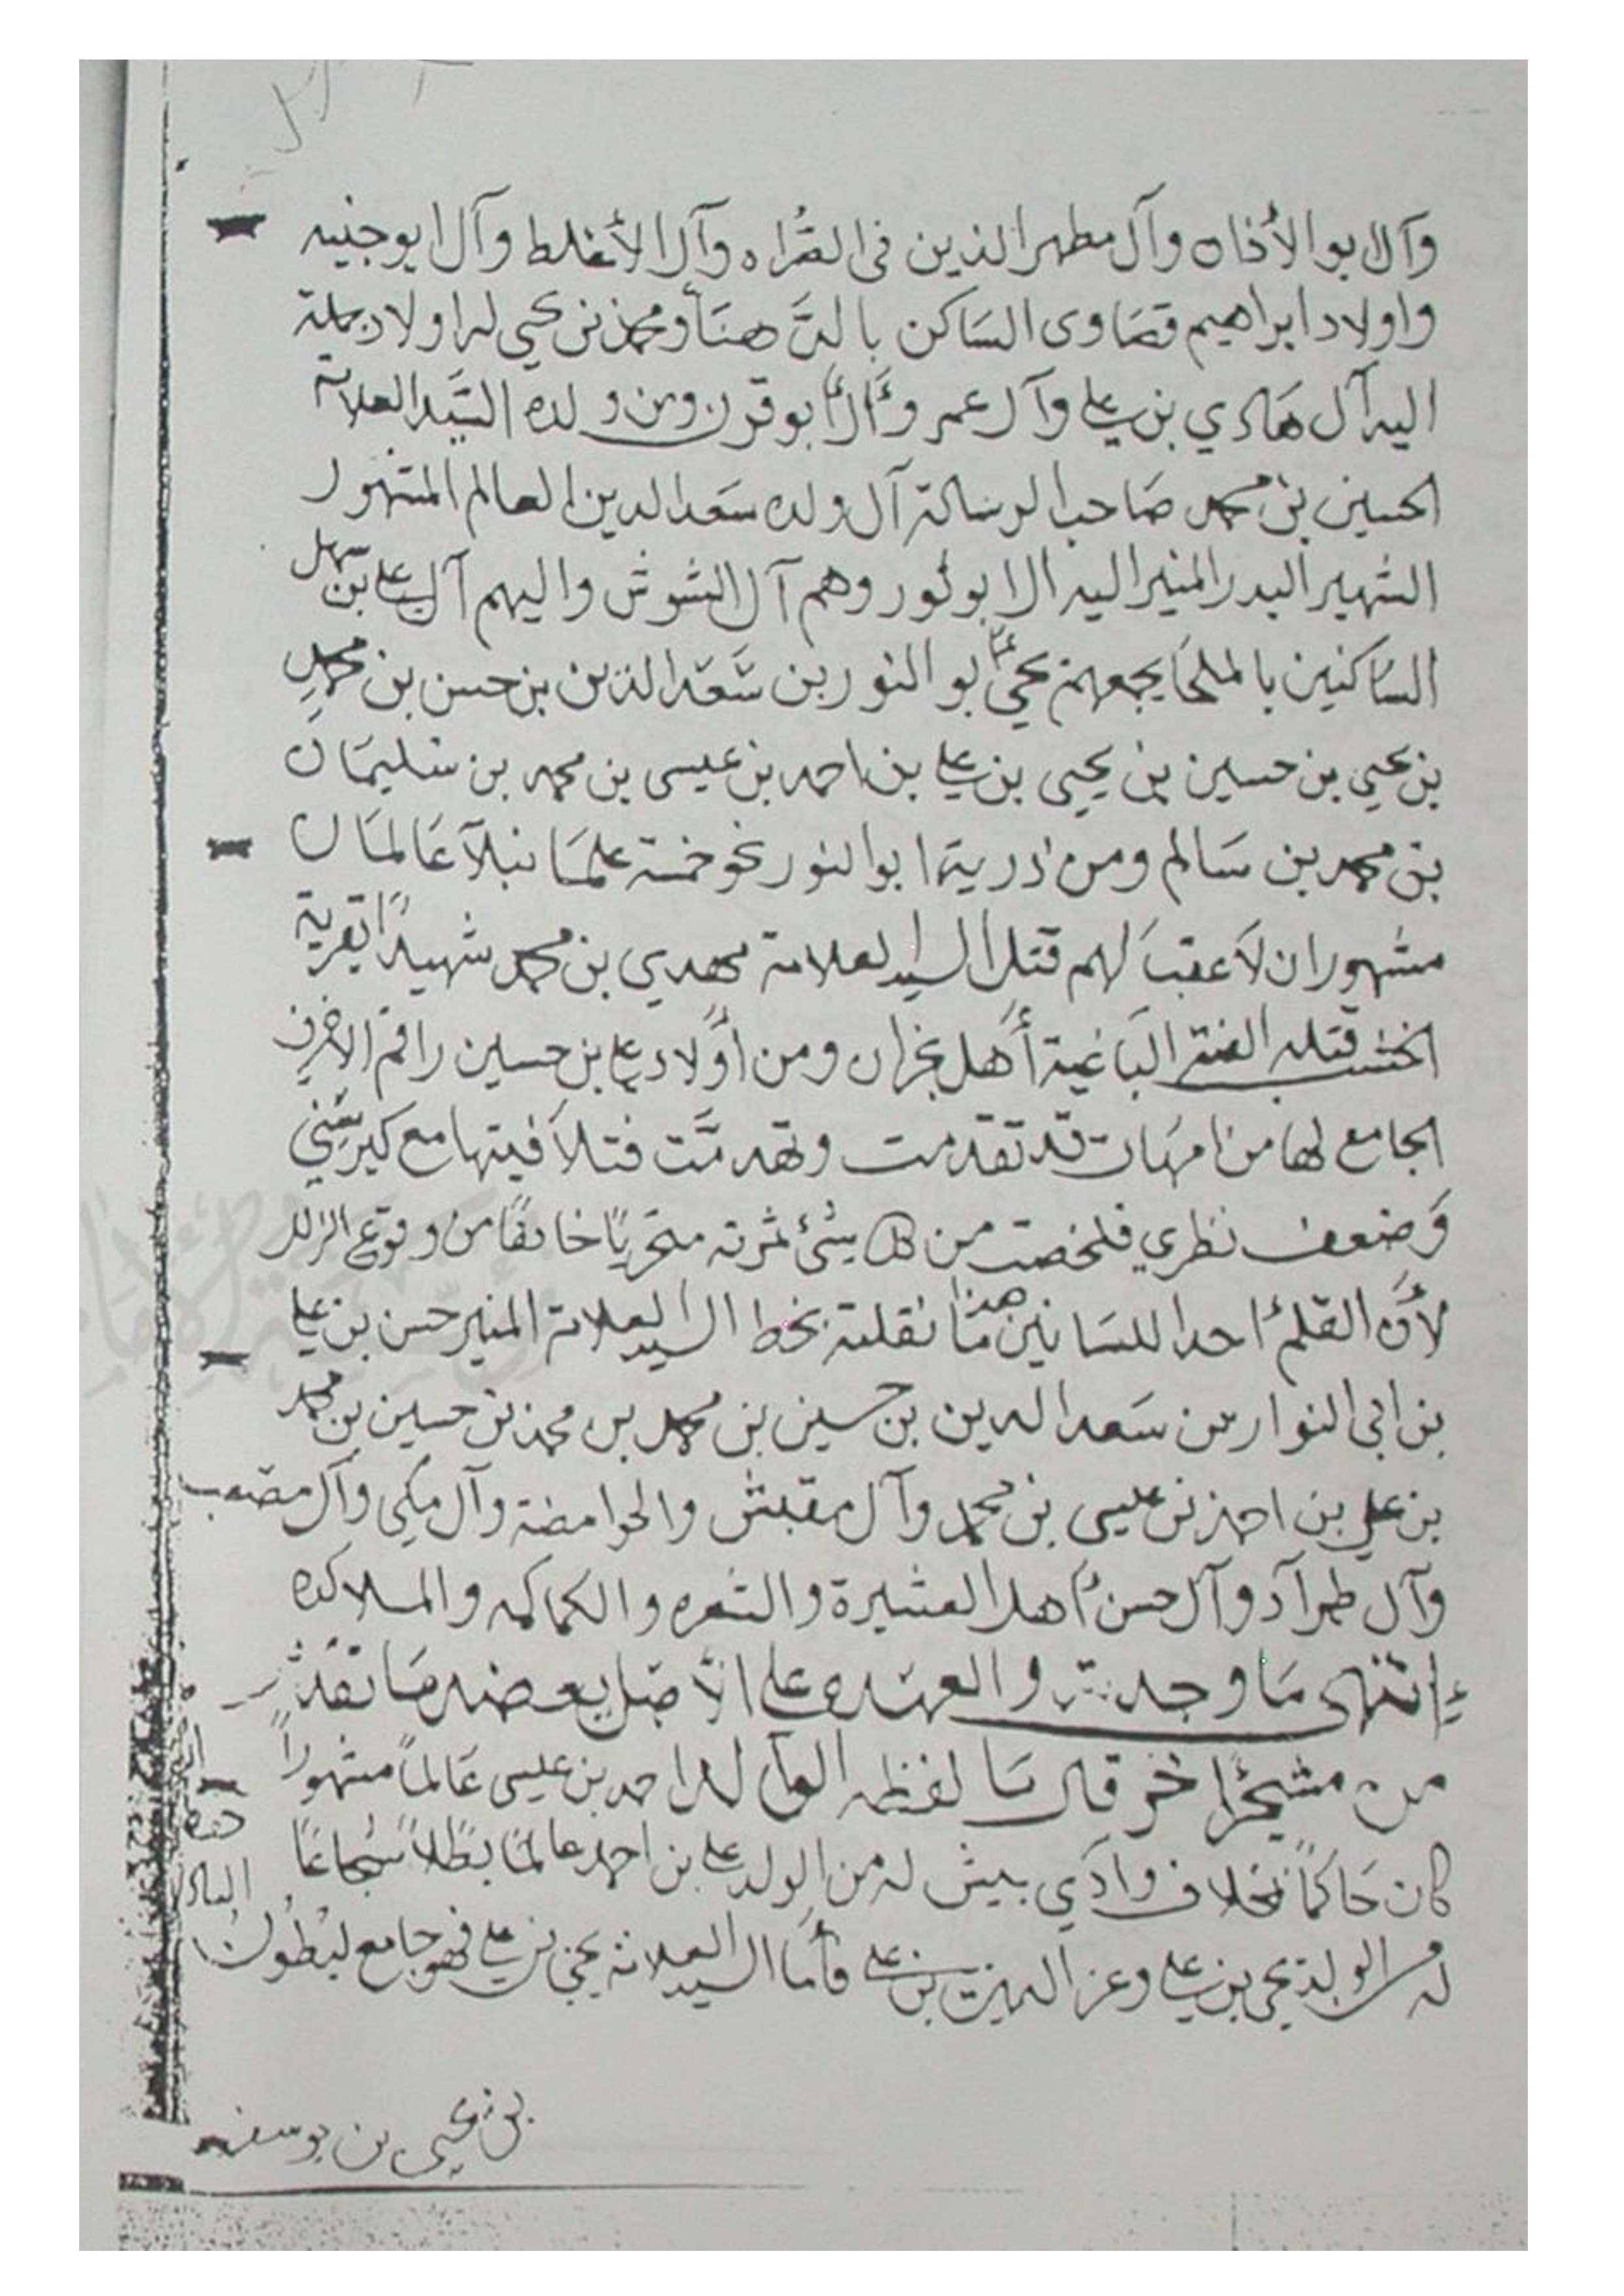 وآل ابو الأذاه وآل مطهر الذين في القراه وآل الأغلط وآل ابوجنيه
واولاد ابراهيم قصاوى الساكن بالدهنا ومحمد بن يحيى له اولاد جملة
اليه آل هادي بن علي وآل عمر وآل أبوقرن ومن ولده السيد العلامة
الحسين بن محمد صاحب الرسالة آل ولده سعد الدين العالم المشهور
الشهير البدر المنير اليه ال ابو نور وهم آل الشوش واليهم آل علي بن سهل
الساكنين بالملحا يجمعهم يحيى بو النور بن سعد الدين بن حسن بن محمد
بن يحيى بن حسين بن يحيى بن علي بن احمد بن عيسى بن محمد بن سليمان
بن محمد بن سالم ومن ذرية ابو النور نحو خمسة علما نبلآ عالمان
مشهوران لاعقب لهم قتل السيد العلامة مهدي بن محمد شهيدًا بقرية
الخشب قتله الفئة الباغية أهل نجران ومن أولاد علي بن حسين راقم الاحرف
الجامع لها من امهات قد تقدمت وتهدمت فتلافيتها مع كبر سني
وضعف نظري فلخصت من كل شئ ثمرته متحريًا خائفًا من وقوع الزلل
لأن القلم احد اللسانين هذا ما نقلته بخط السيد العلامة المنير حسن بن علي
بن ابي النوار بن سعد الدين بن حسين بن محمد بن محمد بن حسين بن محمد
بن علي بن احمد بن عيسى بن محمد وآل مقبش والحوامضة وآل مكي وآل مصعب
وآل طمرآد وآل حسن اهل العشيرة والشعره والكماكمه والملاكده
إنتهى ما وجدته والعهده على الأصل بعضه ما نقلت
من مشجر اخر قال ما لفظه الولد احمد بن عيسى عالماً مشهوراً
كان حاكماً بمخلاف وادي بيش له من الولد علي بن احمد عالمًا بطلاً شجاعًا
له من الولد يحيى بن علي وعز الدين بن علي فأما السيد العلامة يحيى بن علي فهو جامع لبطون
بن يحيى بن يوسف